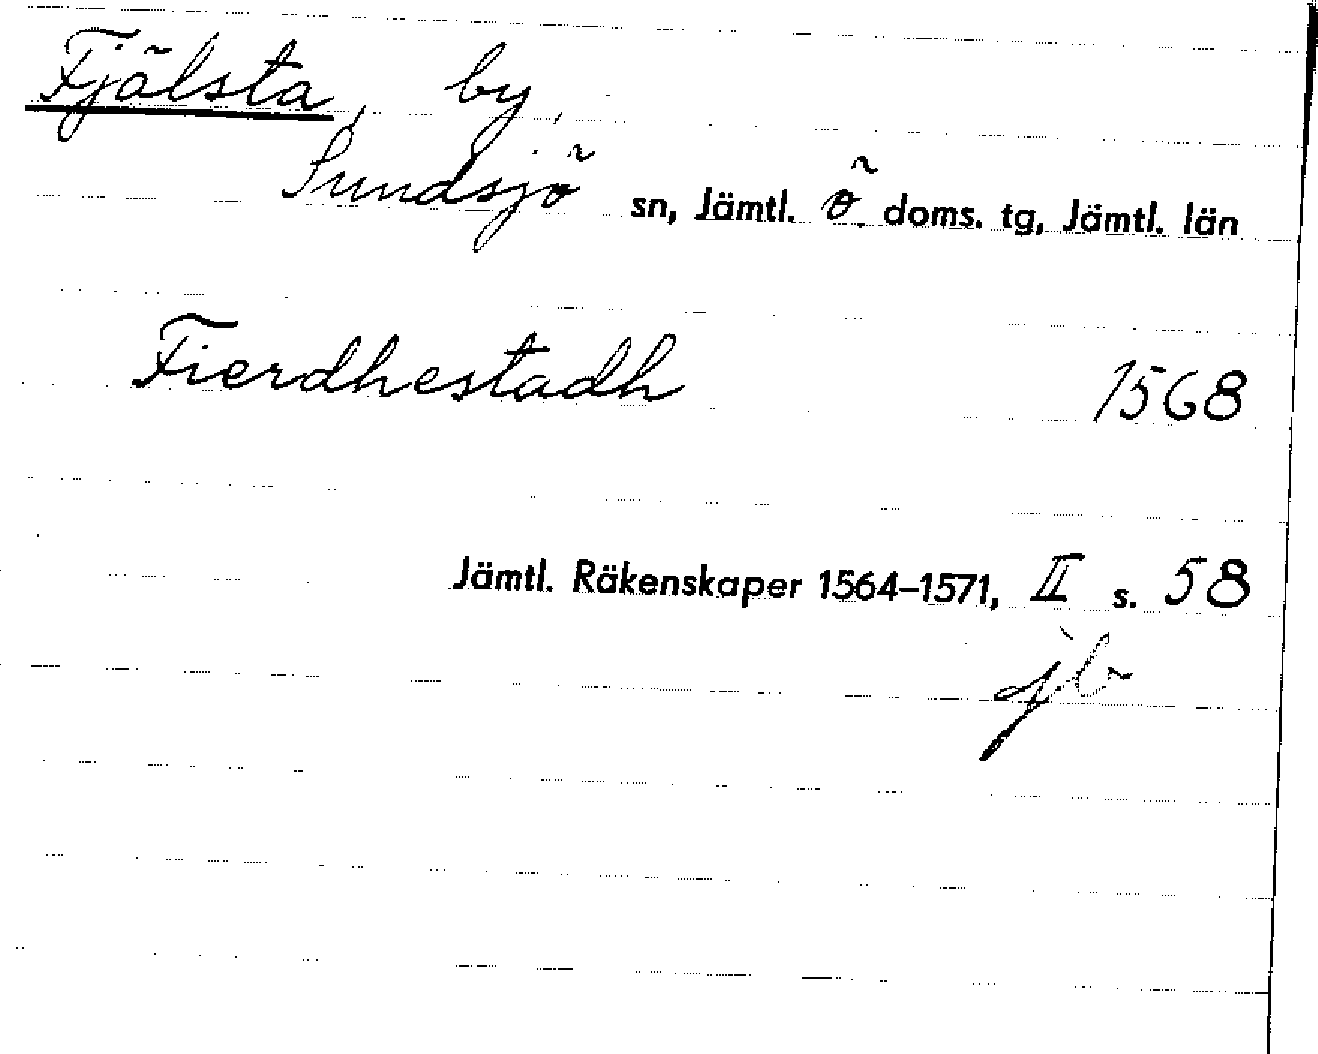 Fjälsta, by,
Sundsjö sn, Jämtl. ö. doms. tg, Jämtl. län
Fierdhestadh 1568
Jämtl. Räkenskaper 1564–1571, II s. 58
jb